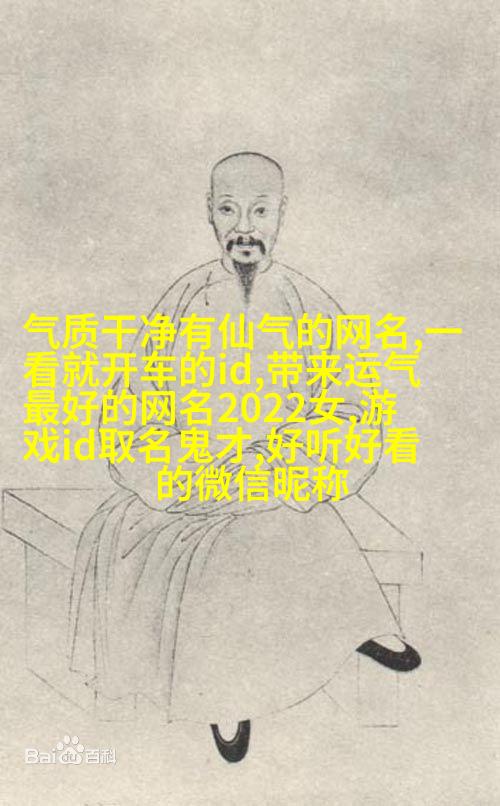 气质干净有仙气的网名,一
看就开车的id,带来运气
最好的网名2022女,游
戏id取名鬼才,好听好看
的微信昵称
Bai du 百科